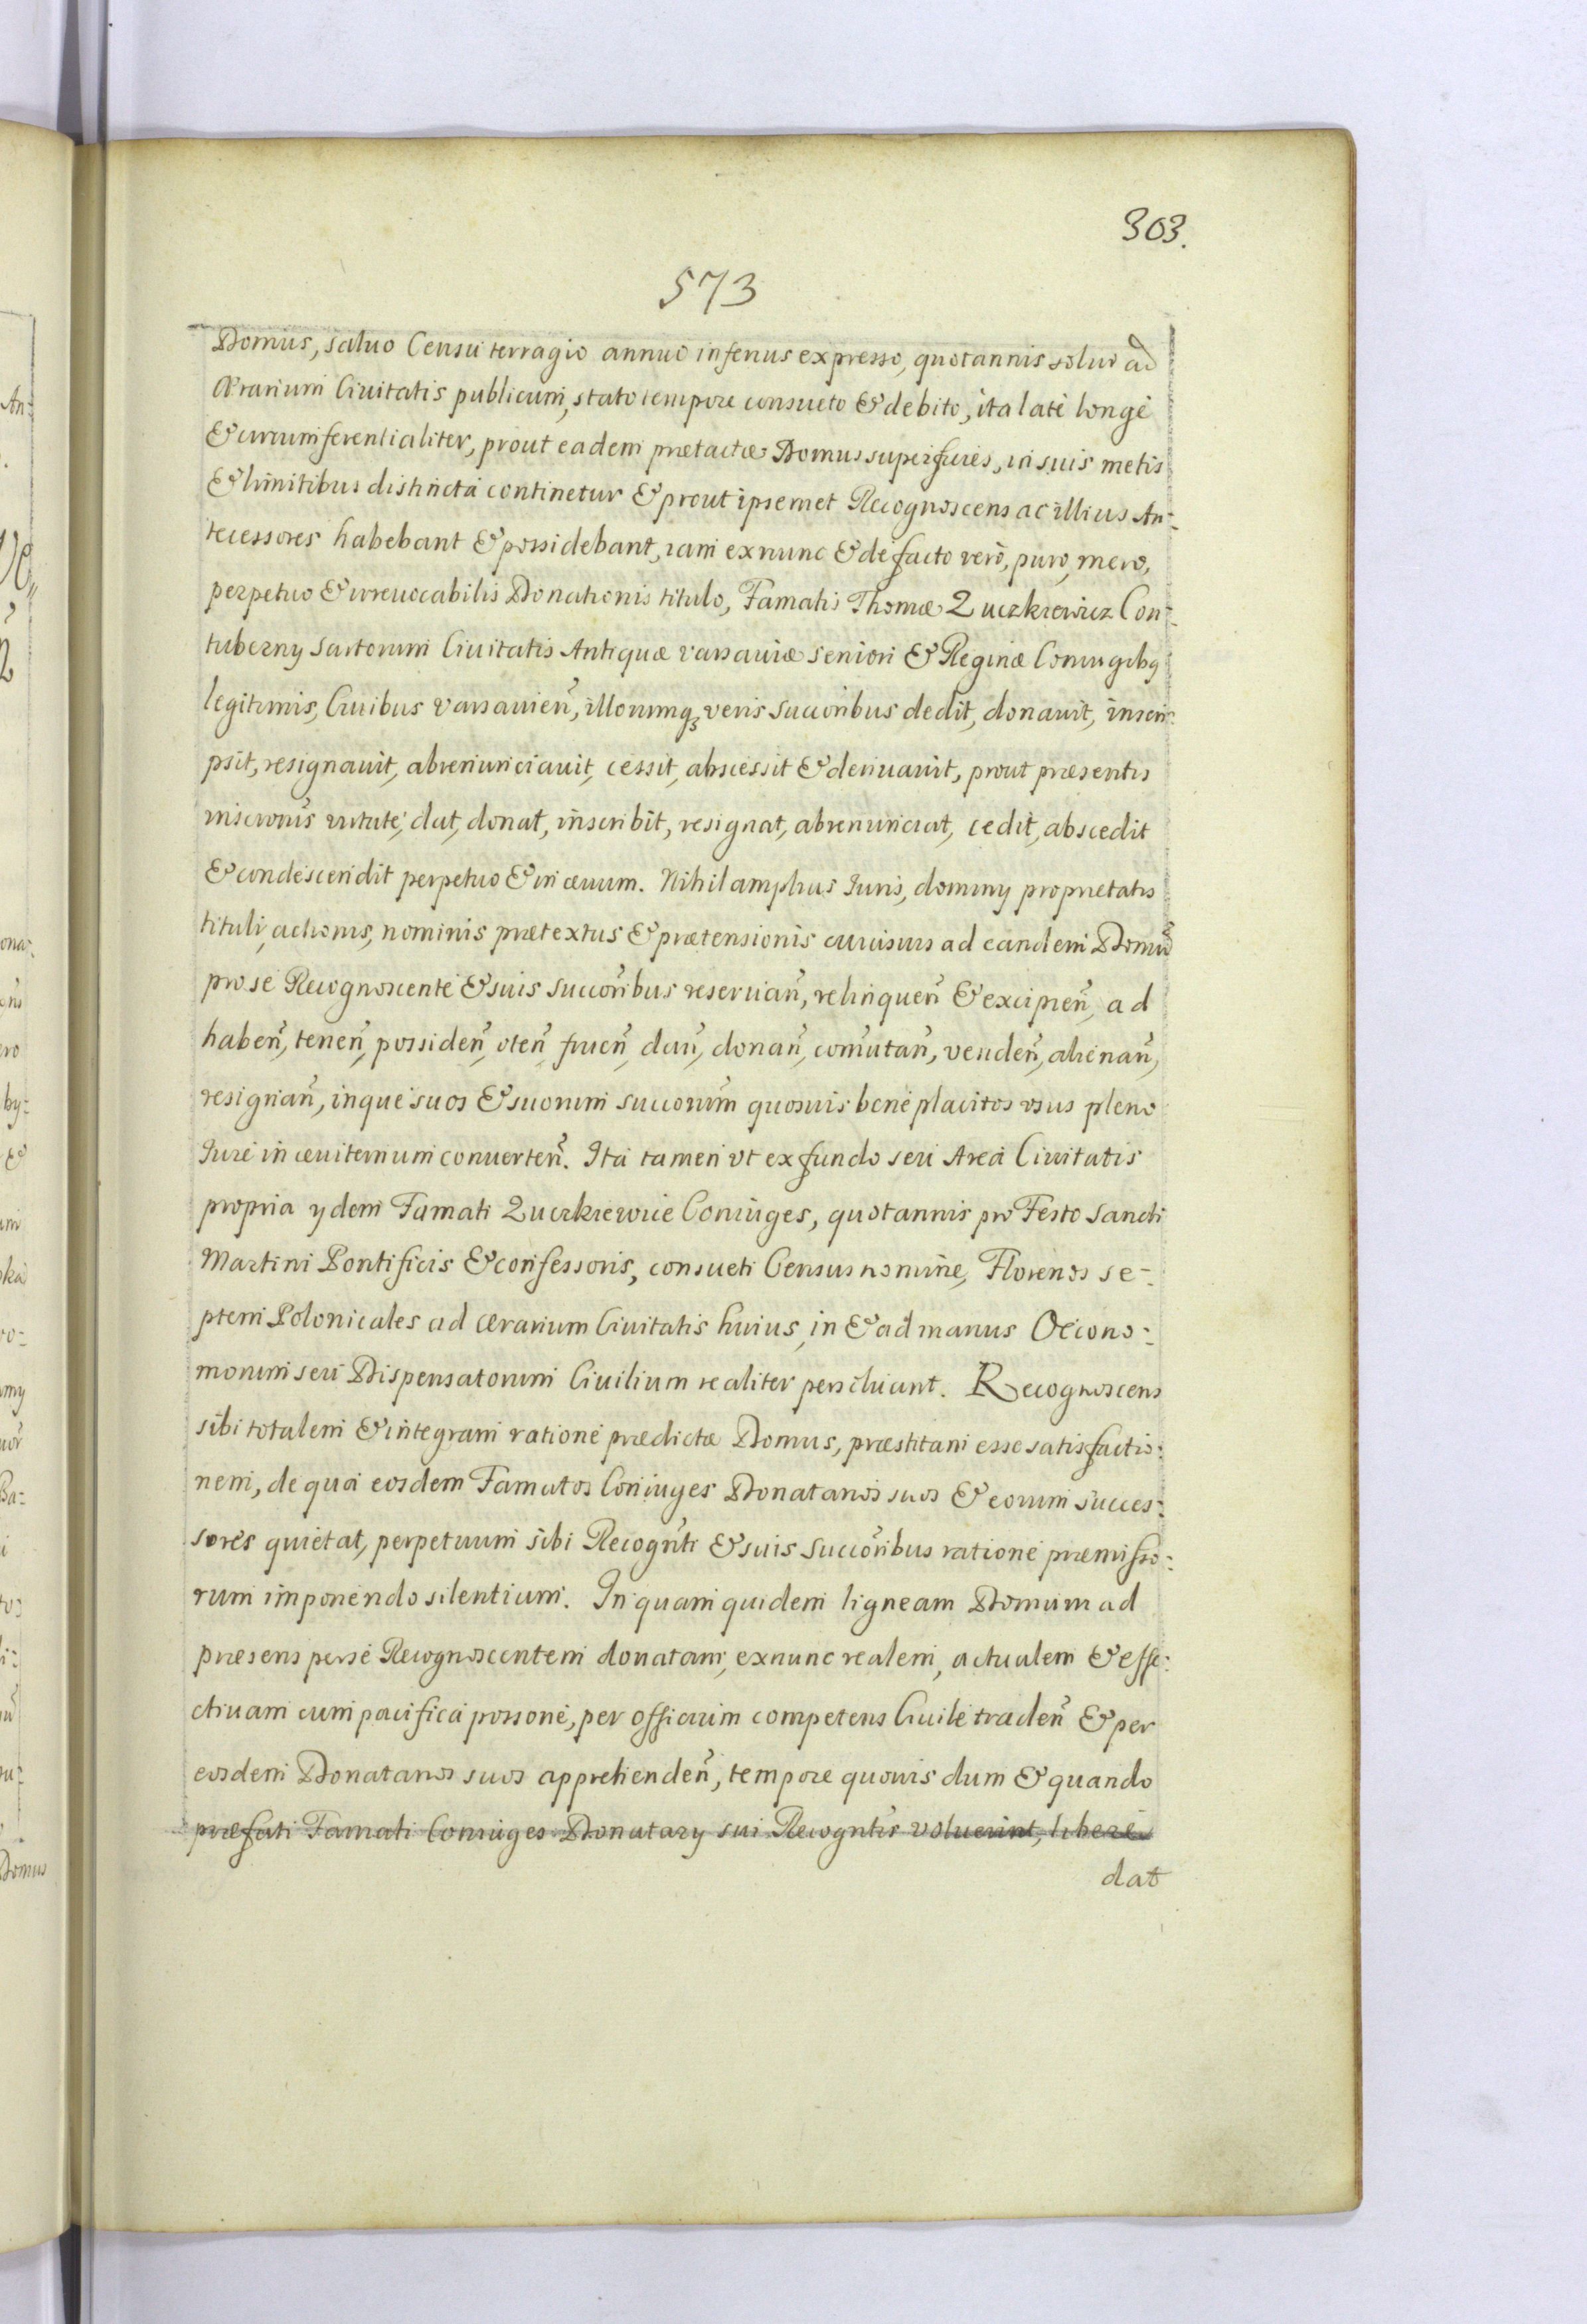 303.
573
Domus, saluo Censu terragio annuo inferius expresso, quotannis solui ad
Ærarium Ciuitatis publicum, stato tempore consueto & debito, ita latè longè
& circumferentialiter, prout eadem prætactæ Domus superficies, in suis metis
& limitibus distincta continetur & prout ipsemet Recognoscens ac illius An-
tecessores habebant & possidebant, iam exnunc & de facto verò, puro, mero,
perpetuo & irreuocabilis Donationis titulo, Famatis Thomæ Zuczkiewicz Con-
tuberny Sartorum Ciuitatis Antiquæ varsauiæ seniori & Reginæ Coniugibq
legitimis, Ciuibus varsauien̄, illorumqꝫ veris Succoribus dedit, donauit, inscri-
psit, resignauit, abrenunciauit, cessit, abscessit & deriuauit, prout præsentis
inscronis virtute, dat, donat, inscribit, resignat, abrenunciat, cedit, abscedit
& condescendit perpetuo & in æuum. Nihil amplius Iuris, dominy proprietatis
tituli, actionis, nominis prætextus & prætensionis cuiusuis ad eandem Domū
pro se Recognoscente & suis succōribus reseruan̄, relinquen̄ & excipien̄, ad
haben̄, tenen̄, possiden̄, vten̄ fruen̄, dan̄, donan̄, com̄utan̄, venden̄, alienan̄,
resignan̄, inque suos & suorum succorūm quosuis benè placitos vsus pleno
Iure in æuiternum conuerten̄. Ita tamen vt ex fundo seu Area Ciuitatis
propria ydem Famati Zuczkiewicie Coniuges, quotannis pro Festo Sancti
Martini Pontificis & confessoris, consueti Census nomine, Florenos se-
ptem Polonicales ad ærarium Ciuitatis huius, in & ad manus Oecono-
morum seu Dispensatorum Ciuilium realiter persoluant. Recognoscens
sibi totalem & integram ratione prædictæ Domus, præstitam esse satisfactio-
nem, de qua eosdem Famatos Coniuges Donatarios suos & eorum succes-
sores quietat, perpetuum sibi Recogn̄ti & suis Succōribus ratione præmisso-
rum imponendo silentium. In quam quidem ligneam Domum ad
præsens per se Recognoscentem donatam, exnunc realem, actualem & effe-
ctiuam cum pacifica possone, per officium competens Ciuile traden̄ & per
eosdem Donatarios suos apprehenden̄, tempore quouis dum & quando
præfati Famati Coniuges Donatary sui Recogntis voluerint, liberè
dat